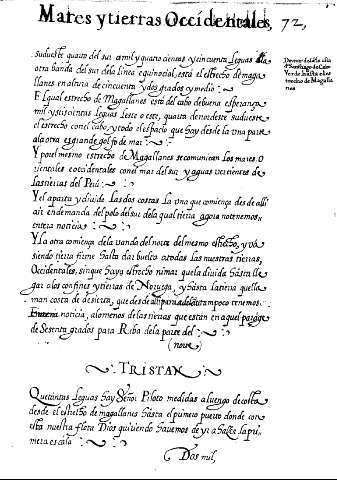 Mares y tierras Occidentales, 72,
sudueste quatro del sur a mil y quatro cientas y cincuenta leguas
otra banda del sur de la linea equinocial, está el estrecho de maga
llanes en altura de cincuenta y dos grados y medio
E Igual estrecho de Magallanes está del cabo de buena esperança
mil y seiscientas leguas leste o este, quarta del nordeste sudueste
el estrecho con el cabo, y todo el espacio que hay desde la una parte
a la otra es grande golfo de mar
Y por el mesmo estrecho de Magallanes se comunican los mares o
rientales e occidentales con el mar del sur y aguas vertientes de
las tierras del Perú
Y el aparta y divide las dos costas la una que comiença desde alli
a ir en demanda del polo del sur de la qual tierra agora no tenemos
entera noticia
Y la otra comiença de la banda del norte del mesmo estrecho, y vá
siendo tierra firme hasta dar buelta a todas las nuestras tierras,
Occidentales, sin que haya estrecho ni mar que la divida hasta lle
gar a los confines y tierras de Noruega, y hasta la tierra que lla
man costa de desierta, que desde alli tampoco tenemos
noticia, a lo menos de las tierras que están en aquel parage
de Sesenta grados para Riba de la parte del
(norte)
TRISTAN
Quinientas leguas hay Señor Piloto medidas a luengo de costa
desde el estrecho de magallanes hasta el primero puerto donde con
esta nuestra flota Dios quiriendo havemos de yr a hazer la pri
mera escala
Dos mil,